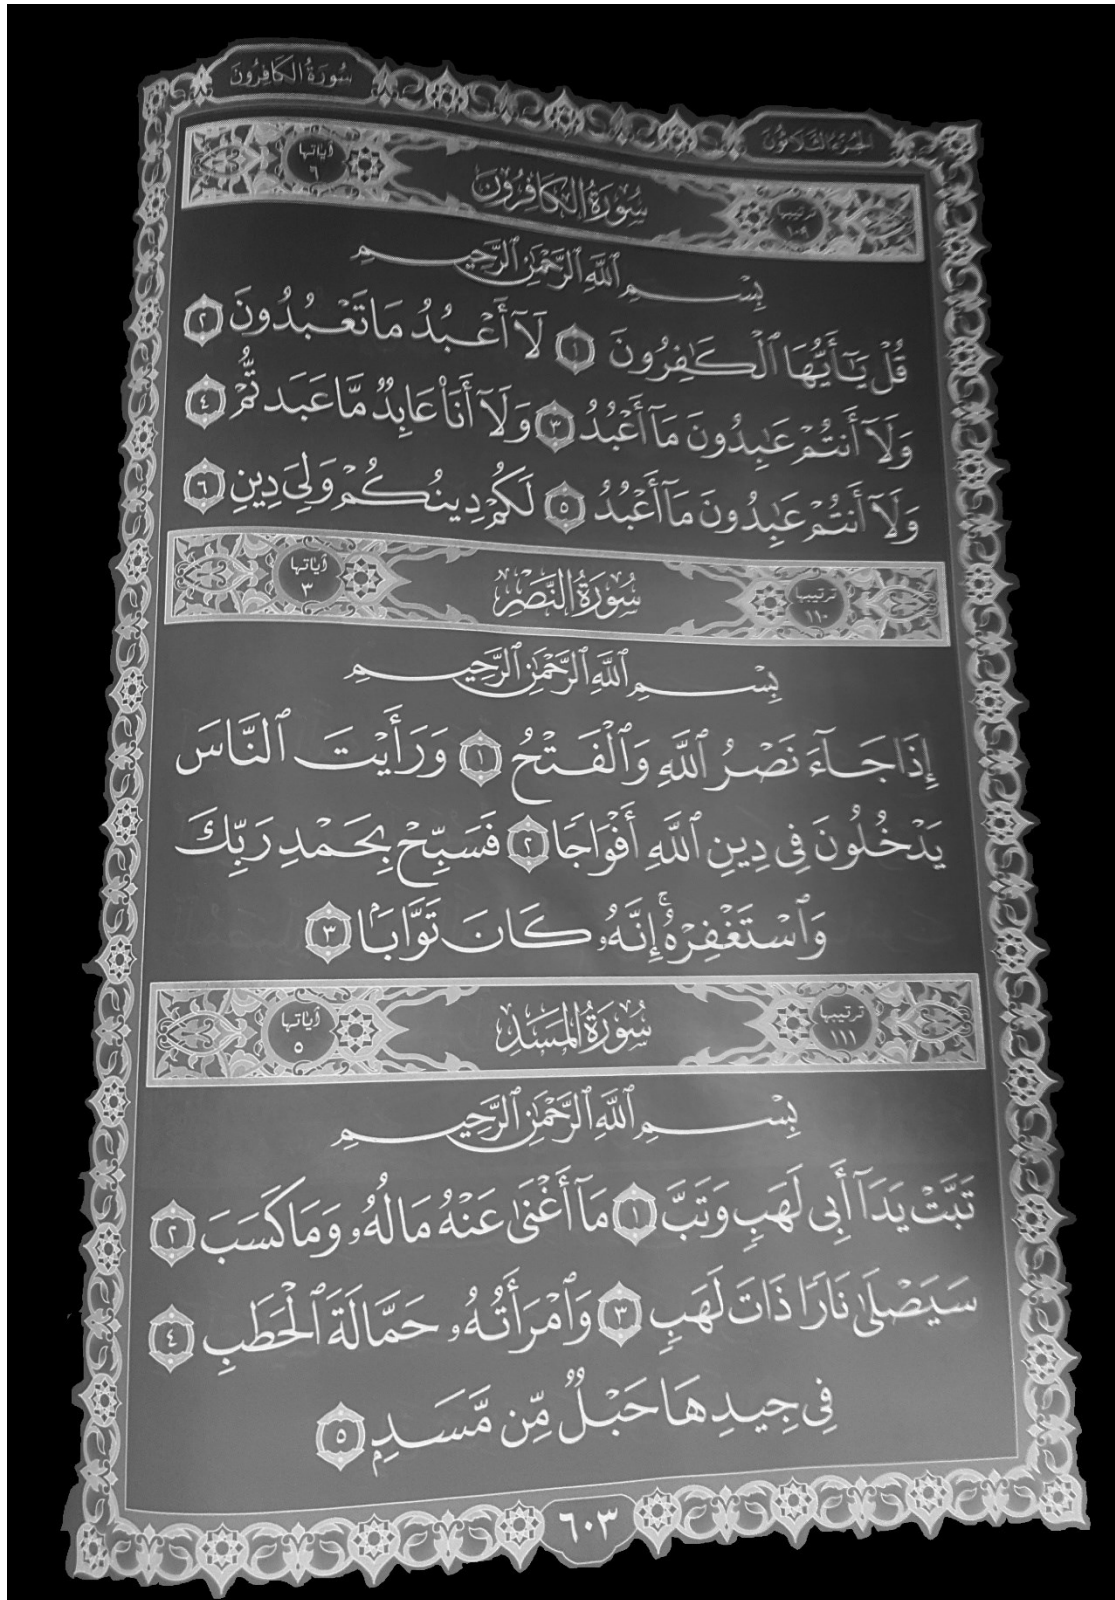 الجزء الثلاثون
سورة الكافرون
ترتيبها ١٠٩
سُورَةُ الكَافِرُونَ
آياتها ٦
بِسْمِ ٱللَّهِ ٱلرَّحْمَٰنِ ٱلرَّحِيمِ
قُلْ يَٰٓأَيُّهَا ٱلْكَٰفِرُونَ ١ لَآ أَعْبُدُ مَا تَعْبُدُونَ ٢
وَلَآ أَنتُمْ عَٰبِدُونَ مَآ أَعْبُدُ ٣ وَلَآ أَنَا۠ عَابِدٌ مَّا عَبَدتُّمْ ٤
وَلَآ أَنتُمْ عَٰبِدُونَ مَآ أَعْبُدُ ٥ لَكُمْ دِينُكُمْ وَلِىَ دِينِ ٦
ترتيبها ١١٠
سُورَةُ النَّصْرِ
آياتها ٣
بِسْمِ ٱللَّهِ ٱلرَّحْمَٰنِ ٱلرَّحِيمِ
إِذَا جَآءَ نَصْرُ ٱللَّهِ وَٱلْفَتْحُ ١ وَرَأَيْتَ ٱلنَّاسَ
يَدْخُلُونَ فِى دِينِ ٱللَّهِ أَفْوَاجًا ٢ فَسَبِّحْ بِحَمْدِ رَبِّكَ
وَٱسْتَغْفِرْهُ ۚ إِنَّهُۥ كَانَ تَوَّابًۢا ٣
ترتيبها ١١١
سُورَةُ المَسَدِ
آياتها ٥
بِسْمِ ٱللَّهِ ٱلرَّحْمَٰنِ ٱلرَّحِيمِ
تَبَّتْ يَدَآ أَبِى لَهَبٍ وَتَبَّ ١ مَآ أَغْنَىٰ عَنْهُ مَالُهُۥ وَمَا كَسَبَ ٢
سَيَصْلَىٰ نَارًا ذَاتَ لَهَبٍ ٣ وَٱمْرَأَتُهُۥ حَمَّالَةَ ٱلْحَطَبِ ٤
فِى جِيدِهَا حَبْلٌ مِّن مَّسَدٍۭ ٥
٦٠٣